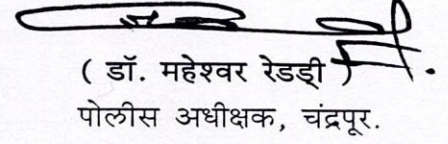 ( डॉ. महेश्वर रेडड्री )
पोलीस अधीक्षक, चंद्रपूर.